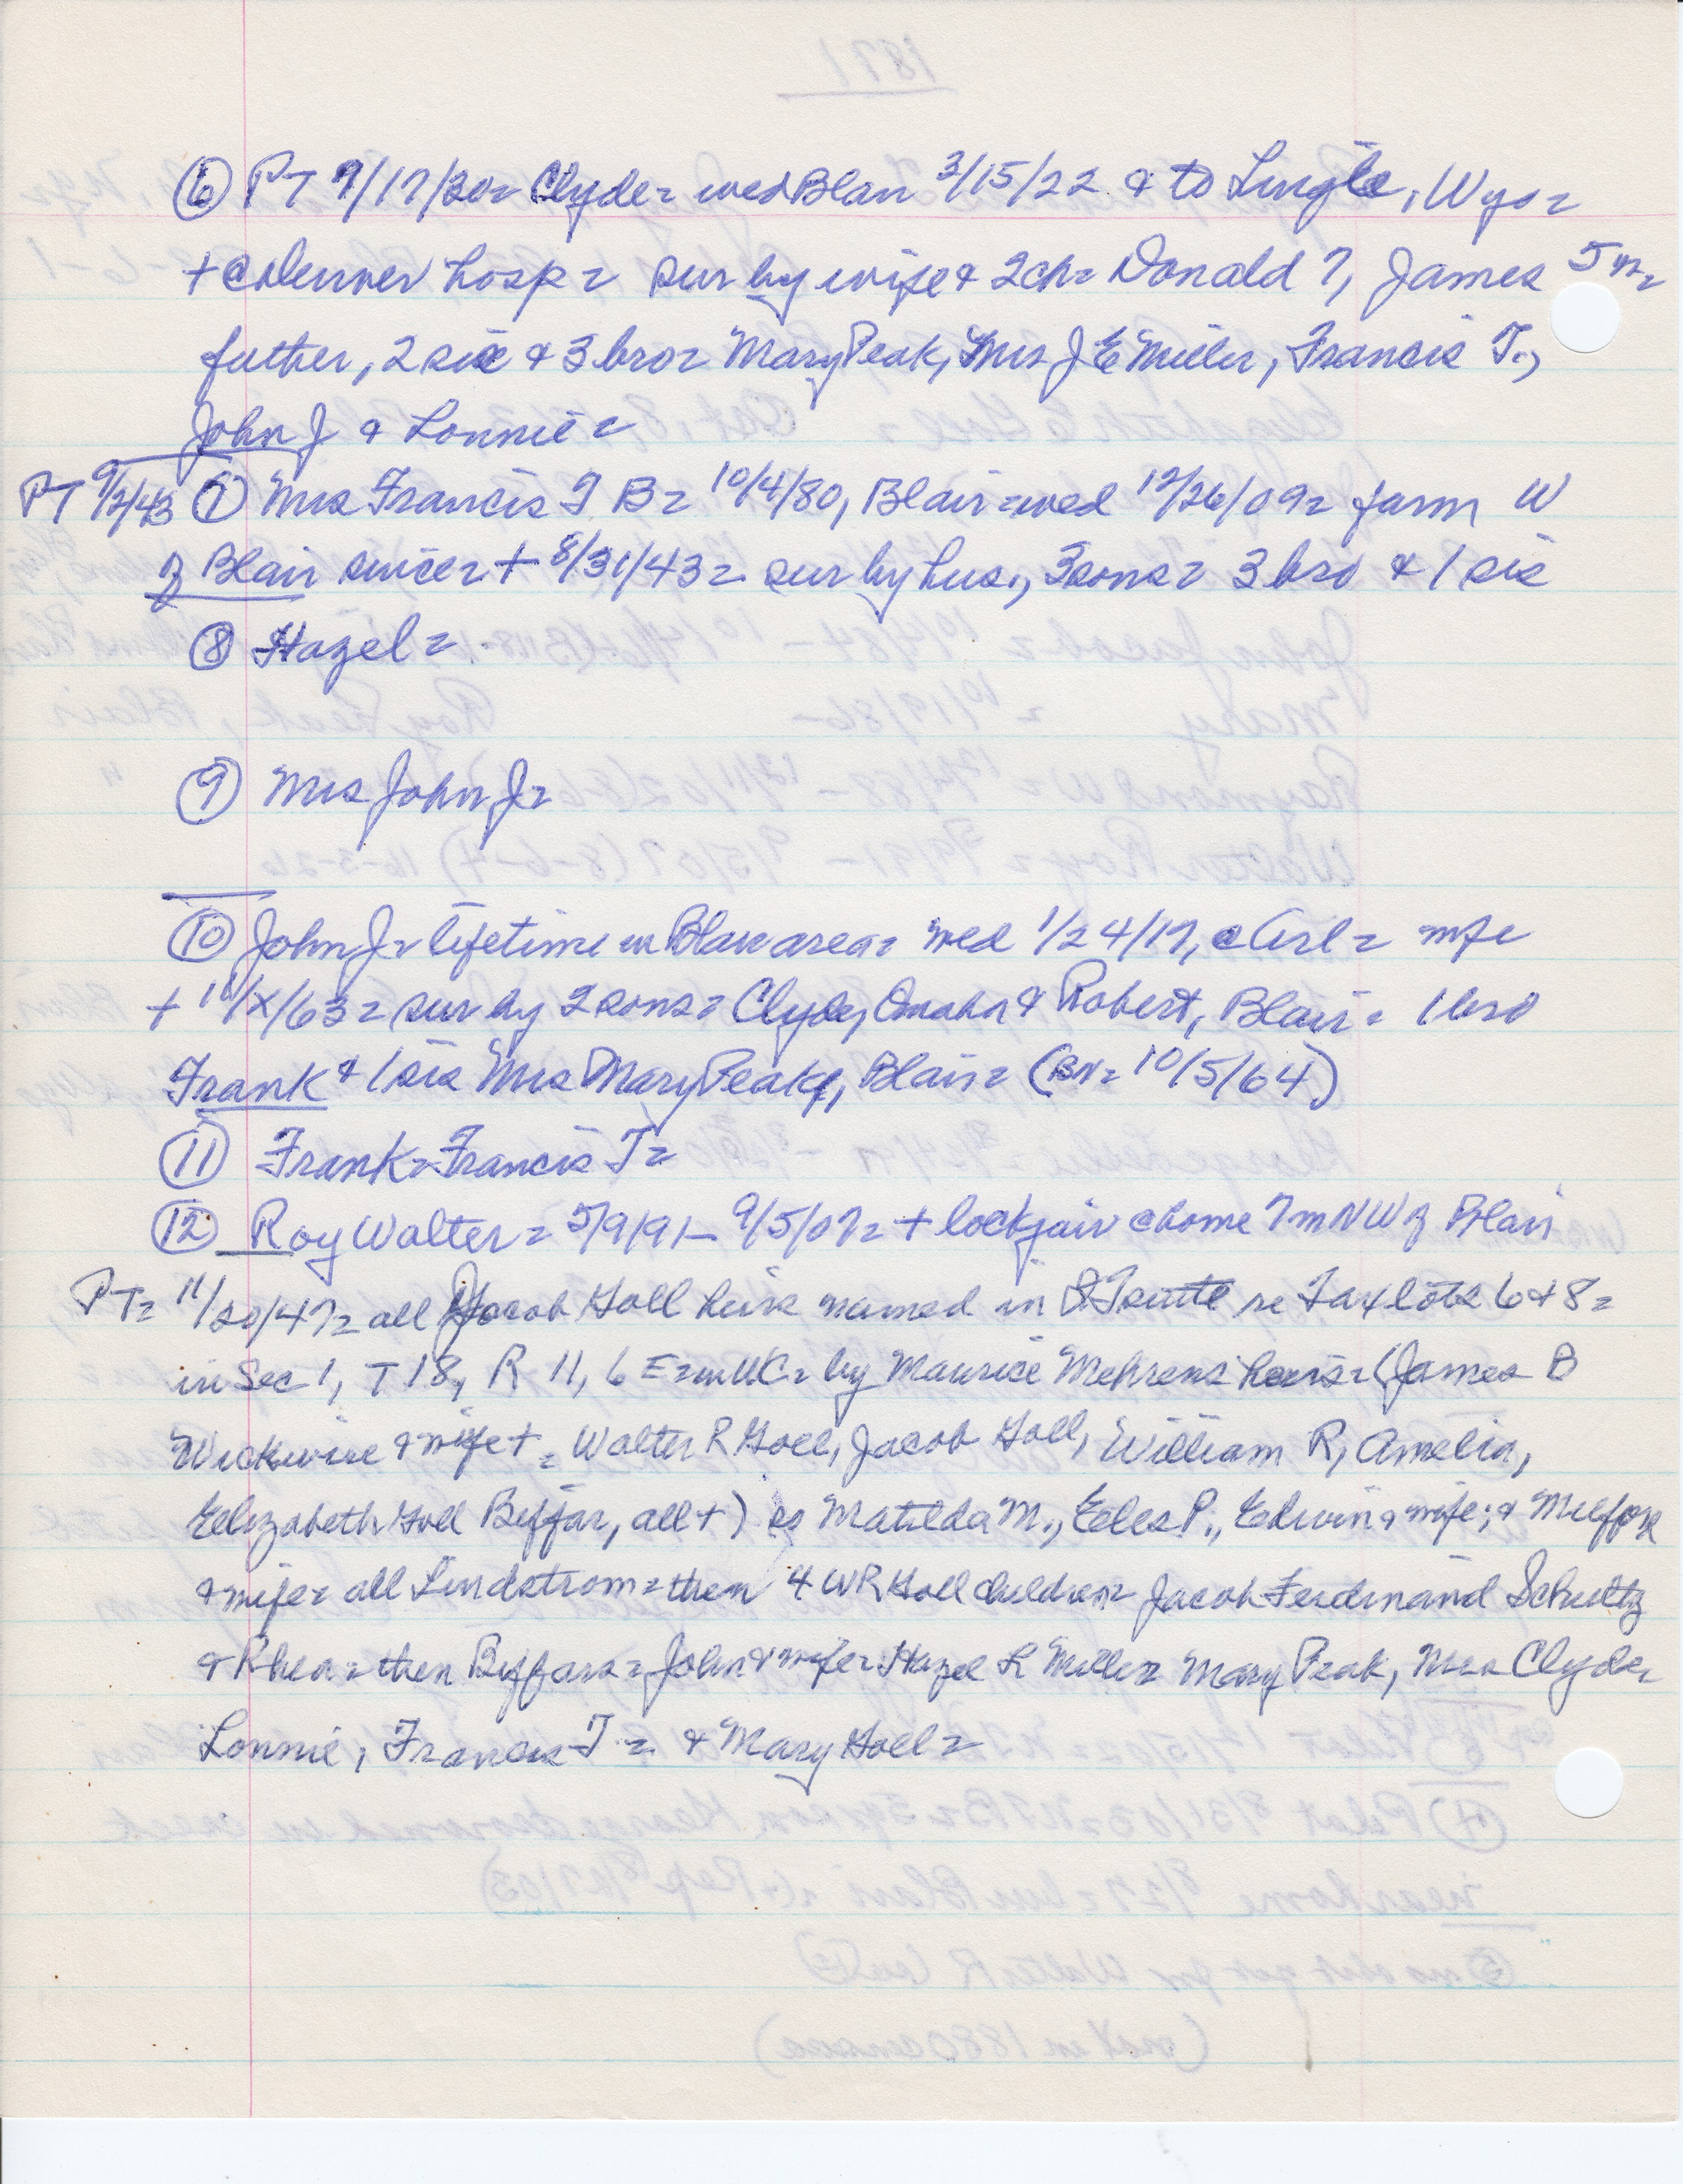 ⑥ PT 9/17/30= Clyde= wed Blair 3/15/22 & to Lingle, Wyo=
+ @ Denver hosp= sur by wife & 2ch= Donald 7, James 5m=
father, 2 sis & 3 bro= Mary Peak, Mrs J E Miller, Francis T.,
John J & Lonnie=
PT 9/2/43 ⑦ Mrs Francis T B= 10/4/80, Blair= wed 12/26/09= farm W
of Blair since= + 8/31/43= sur by hus., 3 sons= 3 bro & 1 sis
⑧ Hazel=
⑨ Mrs John J=
⑩ John J= lifetime in Blair area= wed 1/24/17, @ Arl= wife
+ 11/X/63= sur by 2 sons= Clyde, Omaha & Robert, Blair= 1 bro
Frank & 1 sis Mrs Mary Peak, Blair= (BN= 10/5/64)
⑪ Frank= Francis T=
⑫ Roy Walter= 5/9/91- 9/5/07= + lockjaw @ home 7m NW of Blair
PT= 11/20/47= all Jacob Goll heirs named in suite re Tax lots 6 & 8=
in Sec 1, T 18, R 11, 6 E= in WC= by Maurice Mehrens heirs= (James B
Wickwire & wife+= Walter R Goll, Jacob Goll, William R, Amelia,
Elizabeth Goll Biffar, all +) Matilda M., Eeles P., Edwin & wife; &
& wife= all Lindstrom= then 4 WR Goll children= Jacob Ferdinand Schultz
& Rhea= then Biffars= John & wife= Hazel L Miller= Mary Peak, Mrs Clyde,
Lonnie, Francis T= & Mary Goll=